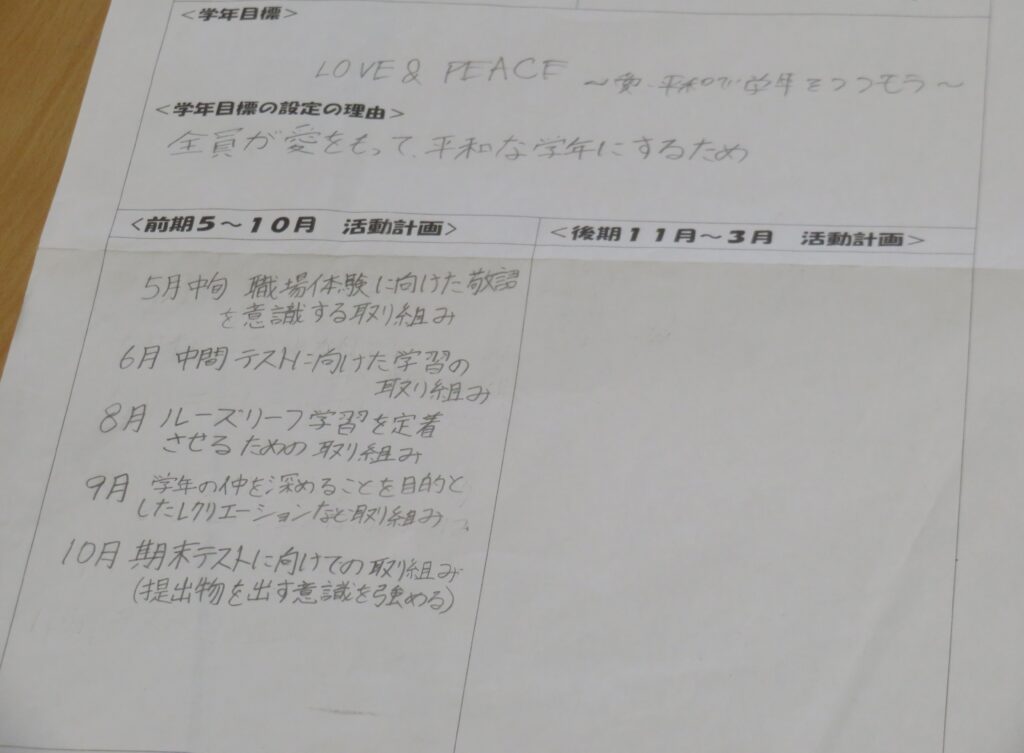 <学年目標>
LOVE & PEACE ～愛・平和で学年をつつもう～
<学年目標の設定の理由>
全員が愛をもって、平和な学年にするため
<前期５～１０月　活動計画>
<後期１１月～３月　活動計画>
5月中旬 職場体験に向けた敬語
を意識する取り組み
6月 中間テストに向けた学習の
取り組み
8月 ルーズリーフ学習を定着
させるための取り組み
9月 学年の仲を深めることを目的と
したレクリエーションなど取り組み
10月 期末テストに向けての取り組み
(提出物を出す意識を強める)